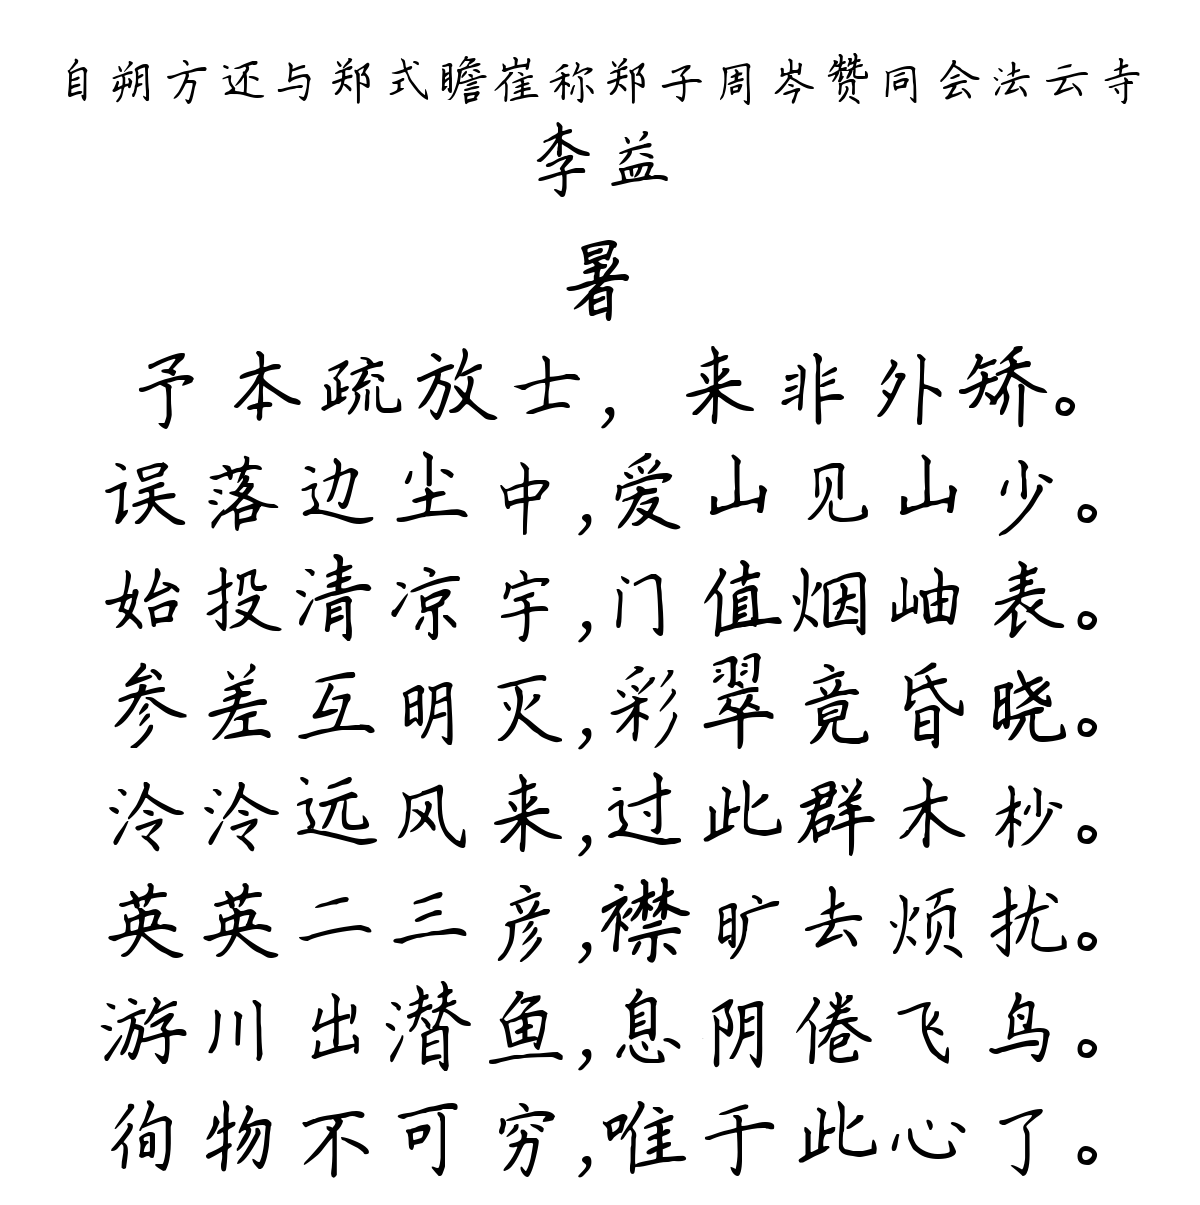 自朔方还与郑式瞻崔称郑子周岑赞同会法云寺
李益
暑
予本疏放士，来非外矫。
误落边尘中，爱山见山少。
始投清凉宇，门值烟岫表。
参差互明灭，彩翠竟昏晓。
泠泠远风来，过此群木杪。
英英二三彦，襟旷去烦扰。
游川出潜鱼，息阴倦飞鸟。
徇物不可穷，唯于此心了。